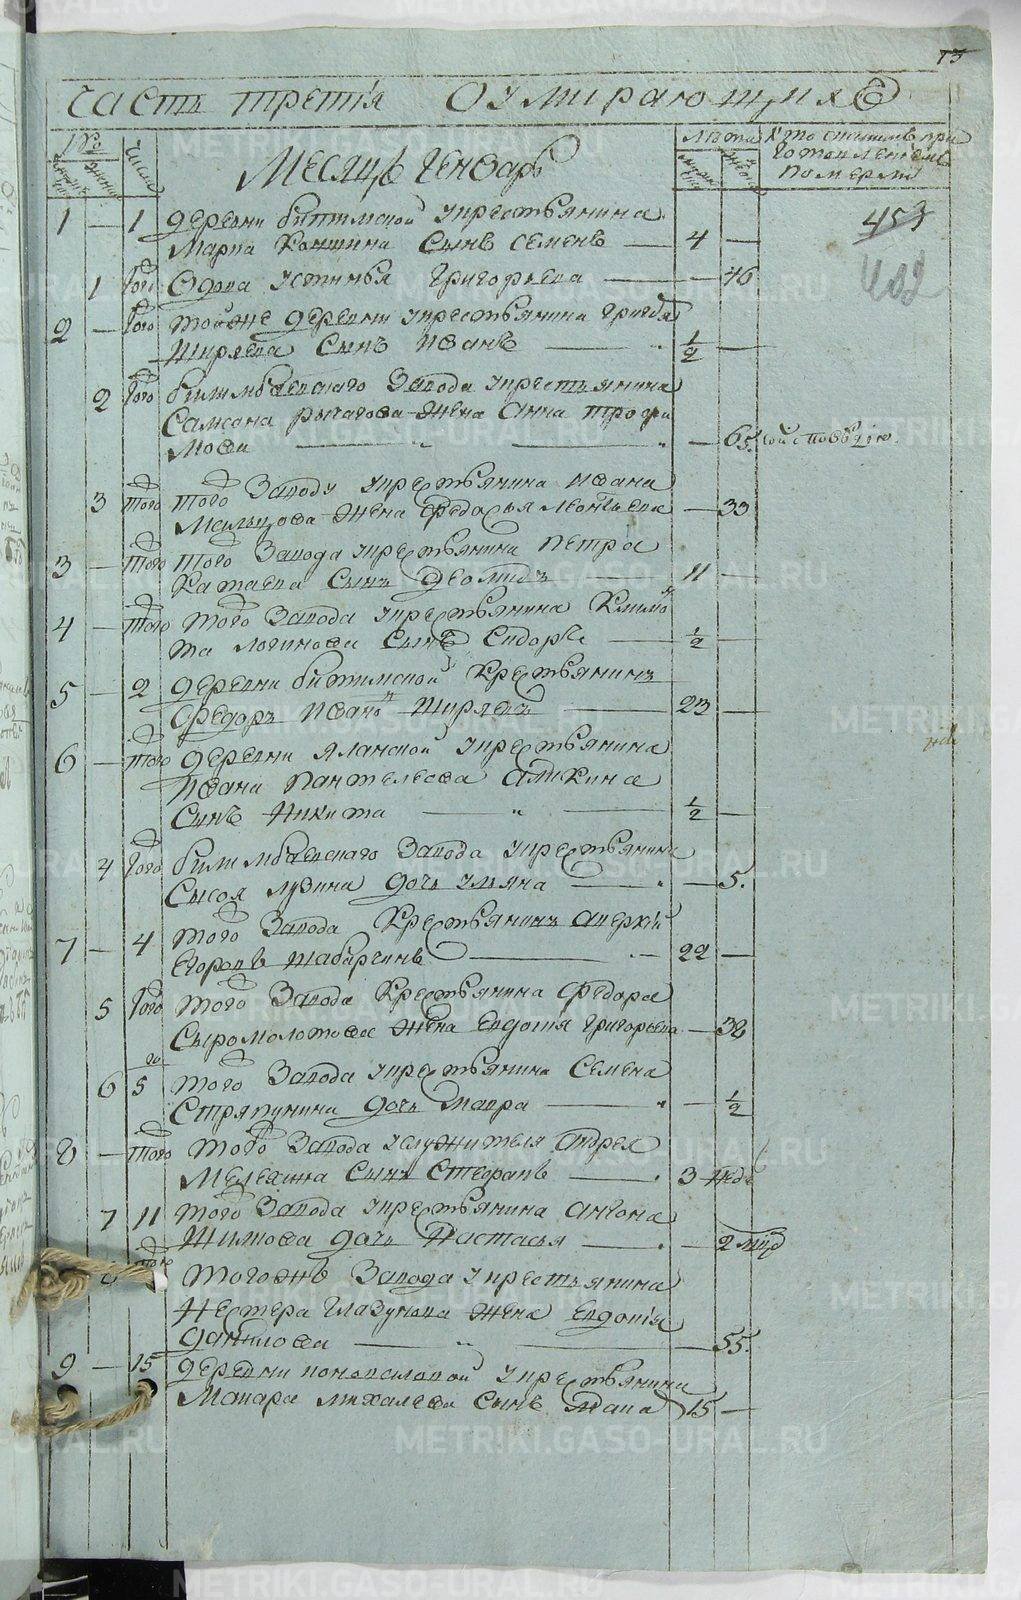 73
Часть третія О умирающихъ
№
Число
Месяцъ Генварь
Лѣта
Кто спитимъ при
готовленіемъ
померли
мужескъ
женска
1 — 1 деревни битимской у крестьянина
Марка Коншина сынъ Семенъ — 4 —
453
1 того Вдова Устинья Григорьева — 46
402
2 — того тойже деревни у крестьянина
Ширяева сынъ Иванъ — ½ —
2 того билимбаевскаго Завода у крестьянина
Самсона рычагова жена Анна трофи
мова — 65.
3 того того Заводу у крестьянина Ивана
Мальцова жена Федосья Леонтьева — 33
3 — того того Завода у крестьянина Петра
Катаева сынъ Диомидъ — 11 —
4 — того того Завода у крестьянина Клима
та логинова сынъ Сидоръ — ½ —
5 — 2 деревни битимской Крестьянинъ
Федоръ Ивановъ Ширяевъ — 23 —
6 — того деревни Яланской у крестьянина
Ивана Пантелѣева
сынъ Никита — ½ —
4 того билимбаевскаго Завода у крестьянина
Сысоя лузина дочь Ульяна — 5.
7 — 4 того Завода Крестьянинъ Аверкій
Егоровъ Шабурчинъ — 22 —
5 того того Завода Крестьянина Федора
Сыромолотова жена Евдотія Григорьева — 32
6 5 того Завода у крестьянина Семена
Стряпунина дочь Мавра — ½
8 — того того Завода у служителя Андрея
Мелехина сынъ Стефанъ — 3 нед
7 11 того Завода у крестьянина Антона
Шилкова дочь Настасья — 2 мцд
8 того тогоже Завода у крестьянина
Нестера Глазунова жена Евдотія
данилова — 55.
9 — 15 деревни коноваловой у крестьянина
Макара михалева сынъ — 15 —
METRIKI.GASO-URAL.RU